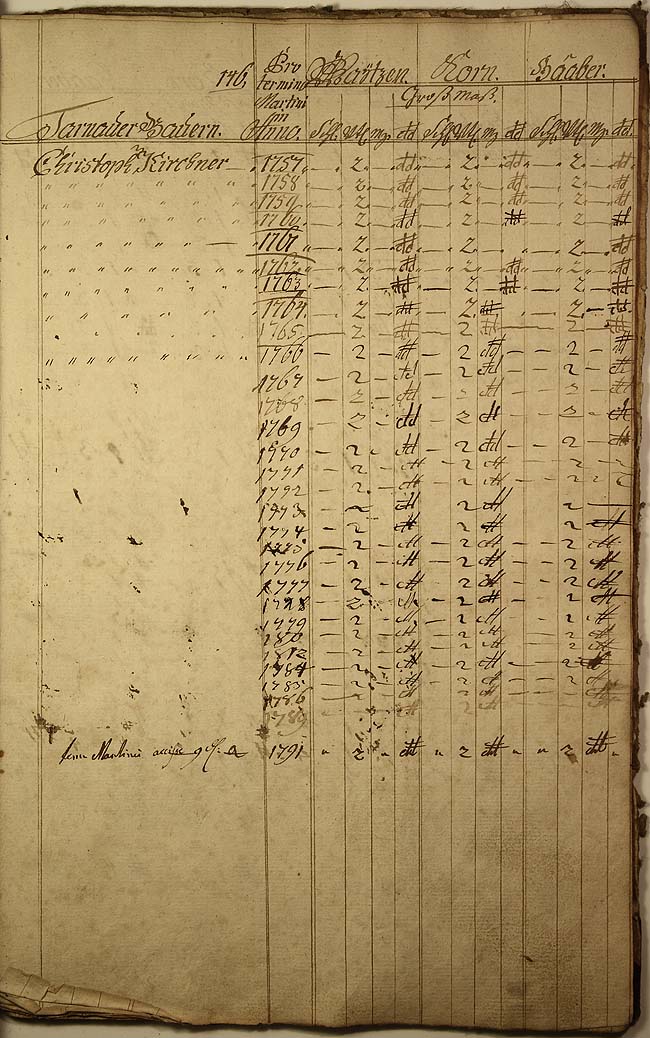 146. Pro Waitzen. Korn. Haaber.
termino
Martini Großmaß.
Tarnauer Bauern. Anno. Schl. Vtl. mz. dd Schl. Vtl. mz dd Schl. Vtl. mz. dd.
Christoph Kirchner 1757. 2. dd 2. dd 2. dd
1758 2. dd 2. dd 2. dd
1759 2. dd 2. dd 2. dd
1760 2. dd 2. dd 2 dd
1761 2. dd 2. 2. dd
1762 2. dd 2. dd 2. dd
1763 2. dd 2. dd 2. dd
1764 2 dd 2. dd 2. dd
1765 2 dd 2 dd 2 dd
1766 2 dd 2 dd 2 dd
1767 2 dd 2 dd 2 dd
1768 2 dd 2 dd 2 dd
1769 2 dd 2 dd 2 dd
1770 2 dd 2 dd 2 dd
1771 2 dd 2 dd 2
1772 2 dd 2 dd 2
1773 2 dd 2 dd 2
1774 2 dd 2 dd 2 dd
1775 2 dd 2 dd 2 dd
1776 2 dd 2 dd 2 dd
1777 2 dd 2 dd 2 dd
1778 2 dd 2 dd 2 dd
1779 2 dd 2 dd 2 dd
180 2 dd 2 dd 2 dd
2 dd 2 dd 2 dd
1784 2 dd 2 dd 2 dd
1785 2 dd 2 dd 2 dd
1786 2 dd 2 dd 2 dd
1789 dd 2 dd
Martini 1791 2 dd 2 dd 2 dd